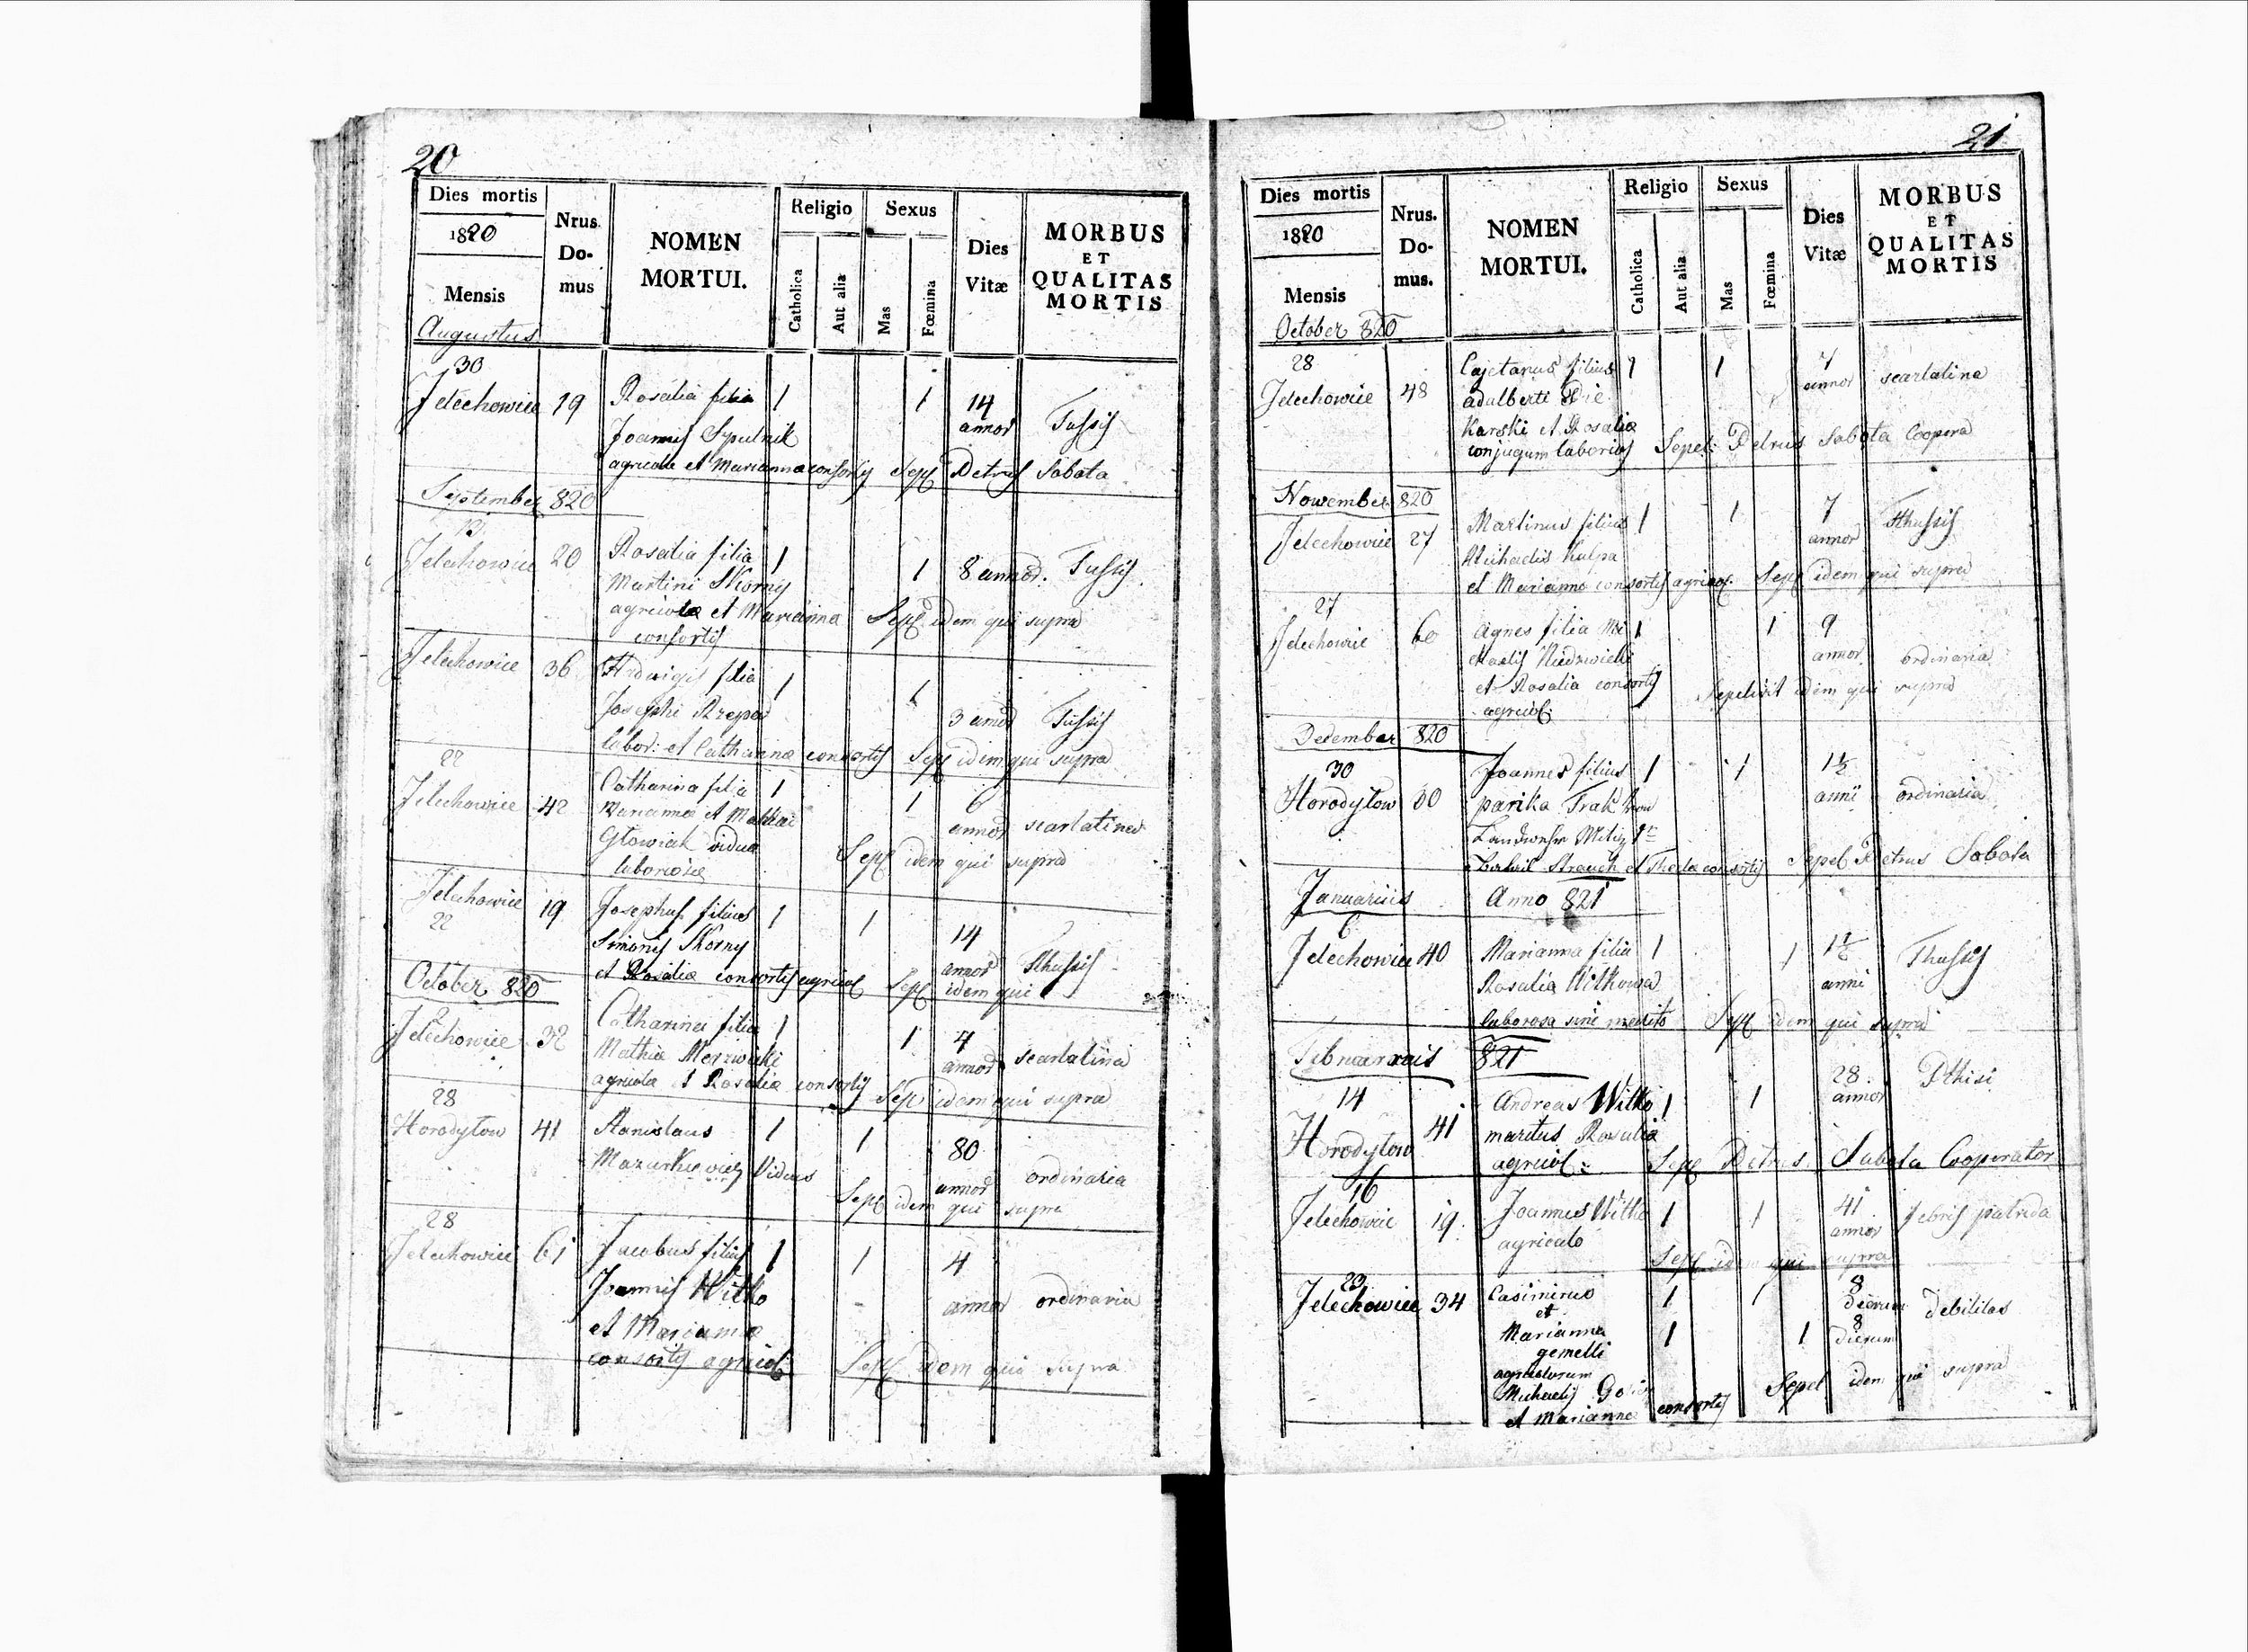 20
Dies mortis
1820
Mensis
Augustus
Nrus. Do- mus
NOMEN MORTUI.
Religio
Catholica
Aut alia
Sexus
Mas
Fœmina
Dies Vitæ
MORBUS
ET
QUALITAS
MORTIS
30
Jelechowice 19 Rosalia filia 1 1 14 annor Tussis
Joannis Sputnik
agricolae et Marianna consortis Sepel Petrus Sabota
September 820
Jelechowice 20 Rosalia filia 1 1 8 annor. Tussis
Martini Skorny
agricolae et Marianna Sepel idem qui supra
consortis
Jelechowice 36 Hedwigis filia 1 1 3 annor Tussis
Josephi
labor: et Catharina consortis Sepel idem qui supra
22
Jelechowice 42 Catharina filia 1 1 6 annor scarlatina
Marianna et Mathiae
Glowiak vidua Sepel idem qui supra
laboriosa
Jelechowice 19 Josephus filius 1 1 14 annor Thussis
22
Simonis Skorny
et Rosalia consortis agricol Sepel idem qui
October 820
2
Jelechowice 32 Catharina filia 1 1 7 annor scarlatina
Mathia
agricola et Rosalia consortis Sepel idem qui supra
28
Horodylow 41 Stanislaus 1 1 80 annor ordinaria
Mazurkiewicz Viduus
Sepel idem qui supra
28
Jelechowice 61 Jacobus filius 1 1 4 annor ordinaria
Joannis Witko
et Marianna
consortis agricol: Sepel idem qui supra
21
Dies mortis
1820
Mensis
October 820
Nrus. Do- mus.
NOMEN MORTUI.
Religio
Catholica
Aut alia
Sexus
Mas
Fœmina
Dies Vitæ
MORBUS
ET
QUALITAS
MORTIS
28
Jelechowice 48 Cajetanus filius 1 1 7 annor scarlatina
adalberti
Karski et Rosalia
conjugum laborios Sepel: Petrus Sabota Coopera
Nowember 820
Jelechowice 27 Martinus filius 1 1 7 annor Thussis
Michaelis Kulpa
et Marianna consortis agricol. Sepel idem qui supra
27
Jelechowice 60 Agnes filia Mi 1 1 9 annor ordinaria
chaelis
et Rosalia consortis Sepelivit idem qui supra
agricol:
December 820
30
Horodylow 30 Joannes filius 1 1 1½ anni ordinaria
et Thecla consortis Sepel Petrus Sabota
Januarius Anno 821
6
Jelechowice 40 Marianna filia 1 1 1½ anni Thussis
Rosalia Witkowa
laborosa sine marito Sepel idem qui supra
821
14
Horodylow 41 Andreas Witko 1 1 28 annor Pthisi
maritus Rosalia
agricol: Sepel Petrus Sabota Cooperator
16
Jelechowice 19. Joannes Witko 1 1 41 annor febris putrida
agricola
Sepel idem qui supra
23
Jelechowice 34 Casimirus 1 1 8 dierum debilitas
et
Marianna 1 1 8 dierum
gemelli
agricolarum
Michaelis Sepel idem qui supra
et Marianna consortis